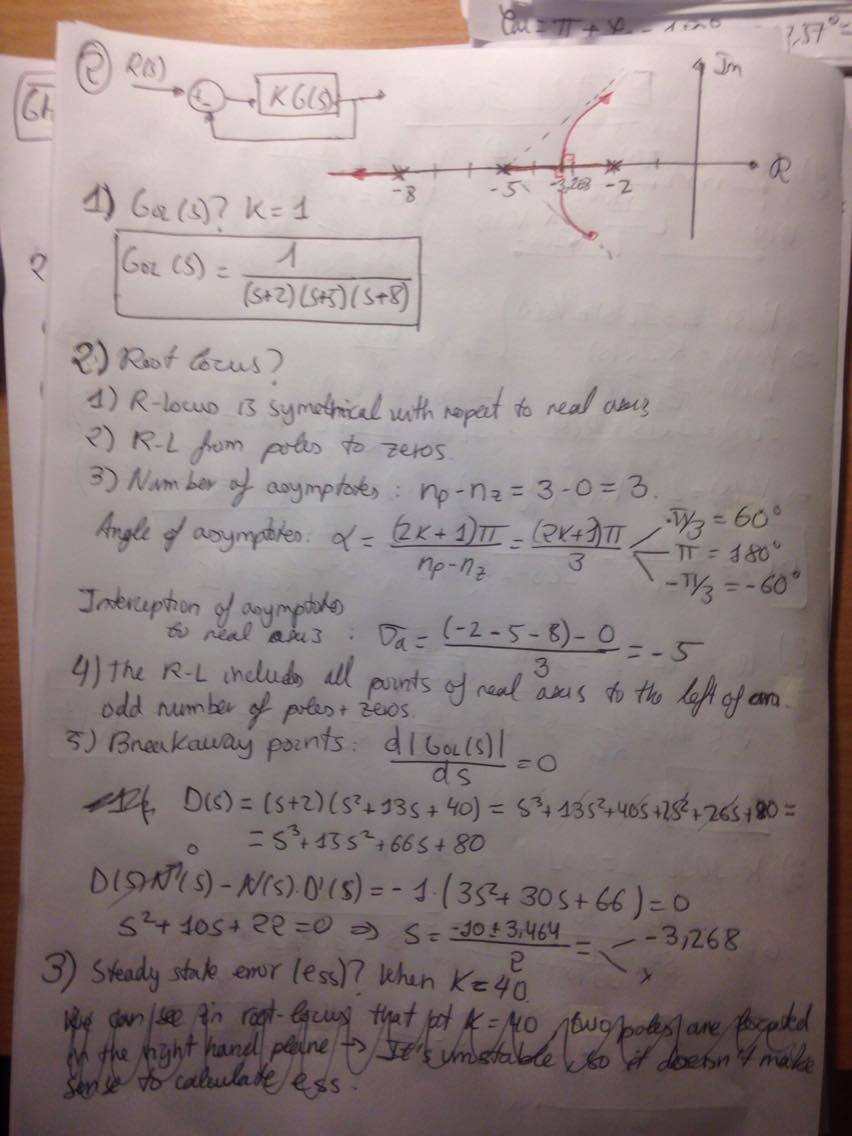 Car = π +
,57° =
GH
2
② R(s)
+
-
KG(s)
Im
R
-8
-5
-3,268
-2
1) GOL(s)? K = 1
GOL(s) = 1 / (s+2)(s+5)(s+8)
2) Root locus?
1) R-locus is symetrical with repect to real axis
2) R-L from poles to zeros.
3) Number of asymptotes: np - nz = 3 - 0 = 3.
Angle of asymptotes: α = (2K+1)π / np - nz = (2K+1)π / 3
π/3 = 60°
π = 180°
-π/3 = -60°
Interception of asymptotes
to real axis : σa = (-2 - 5 - 8) - 0 / 3 = -5
4) The R-L includes all points of real axis to the left of an
odd number of poles + zeros.
5) Breakaway points: d|GOL(s)| / ds = 0
D(s) = (s+2)(s²+13s+40) = s³+13s²+40s+2s²+26s+80 =
= s³+15s²+66s+80
0
D(s)N'(s) - N(s).D'(s) = -1.(3s²+30s+66) = 0
s²+10s+22=0 ⇒ s = -10±3,464 / 2 = -3,268
x
3) Steady state error (ess)? When K=40
We can see in root-locus that at K=40, two poles are located
in the right hand plane → It's unstable, so it doesn't make
sense to calculate ess.